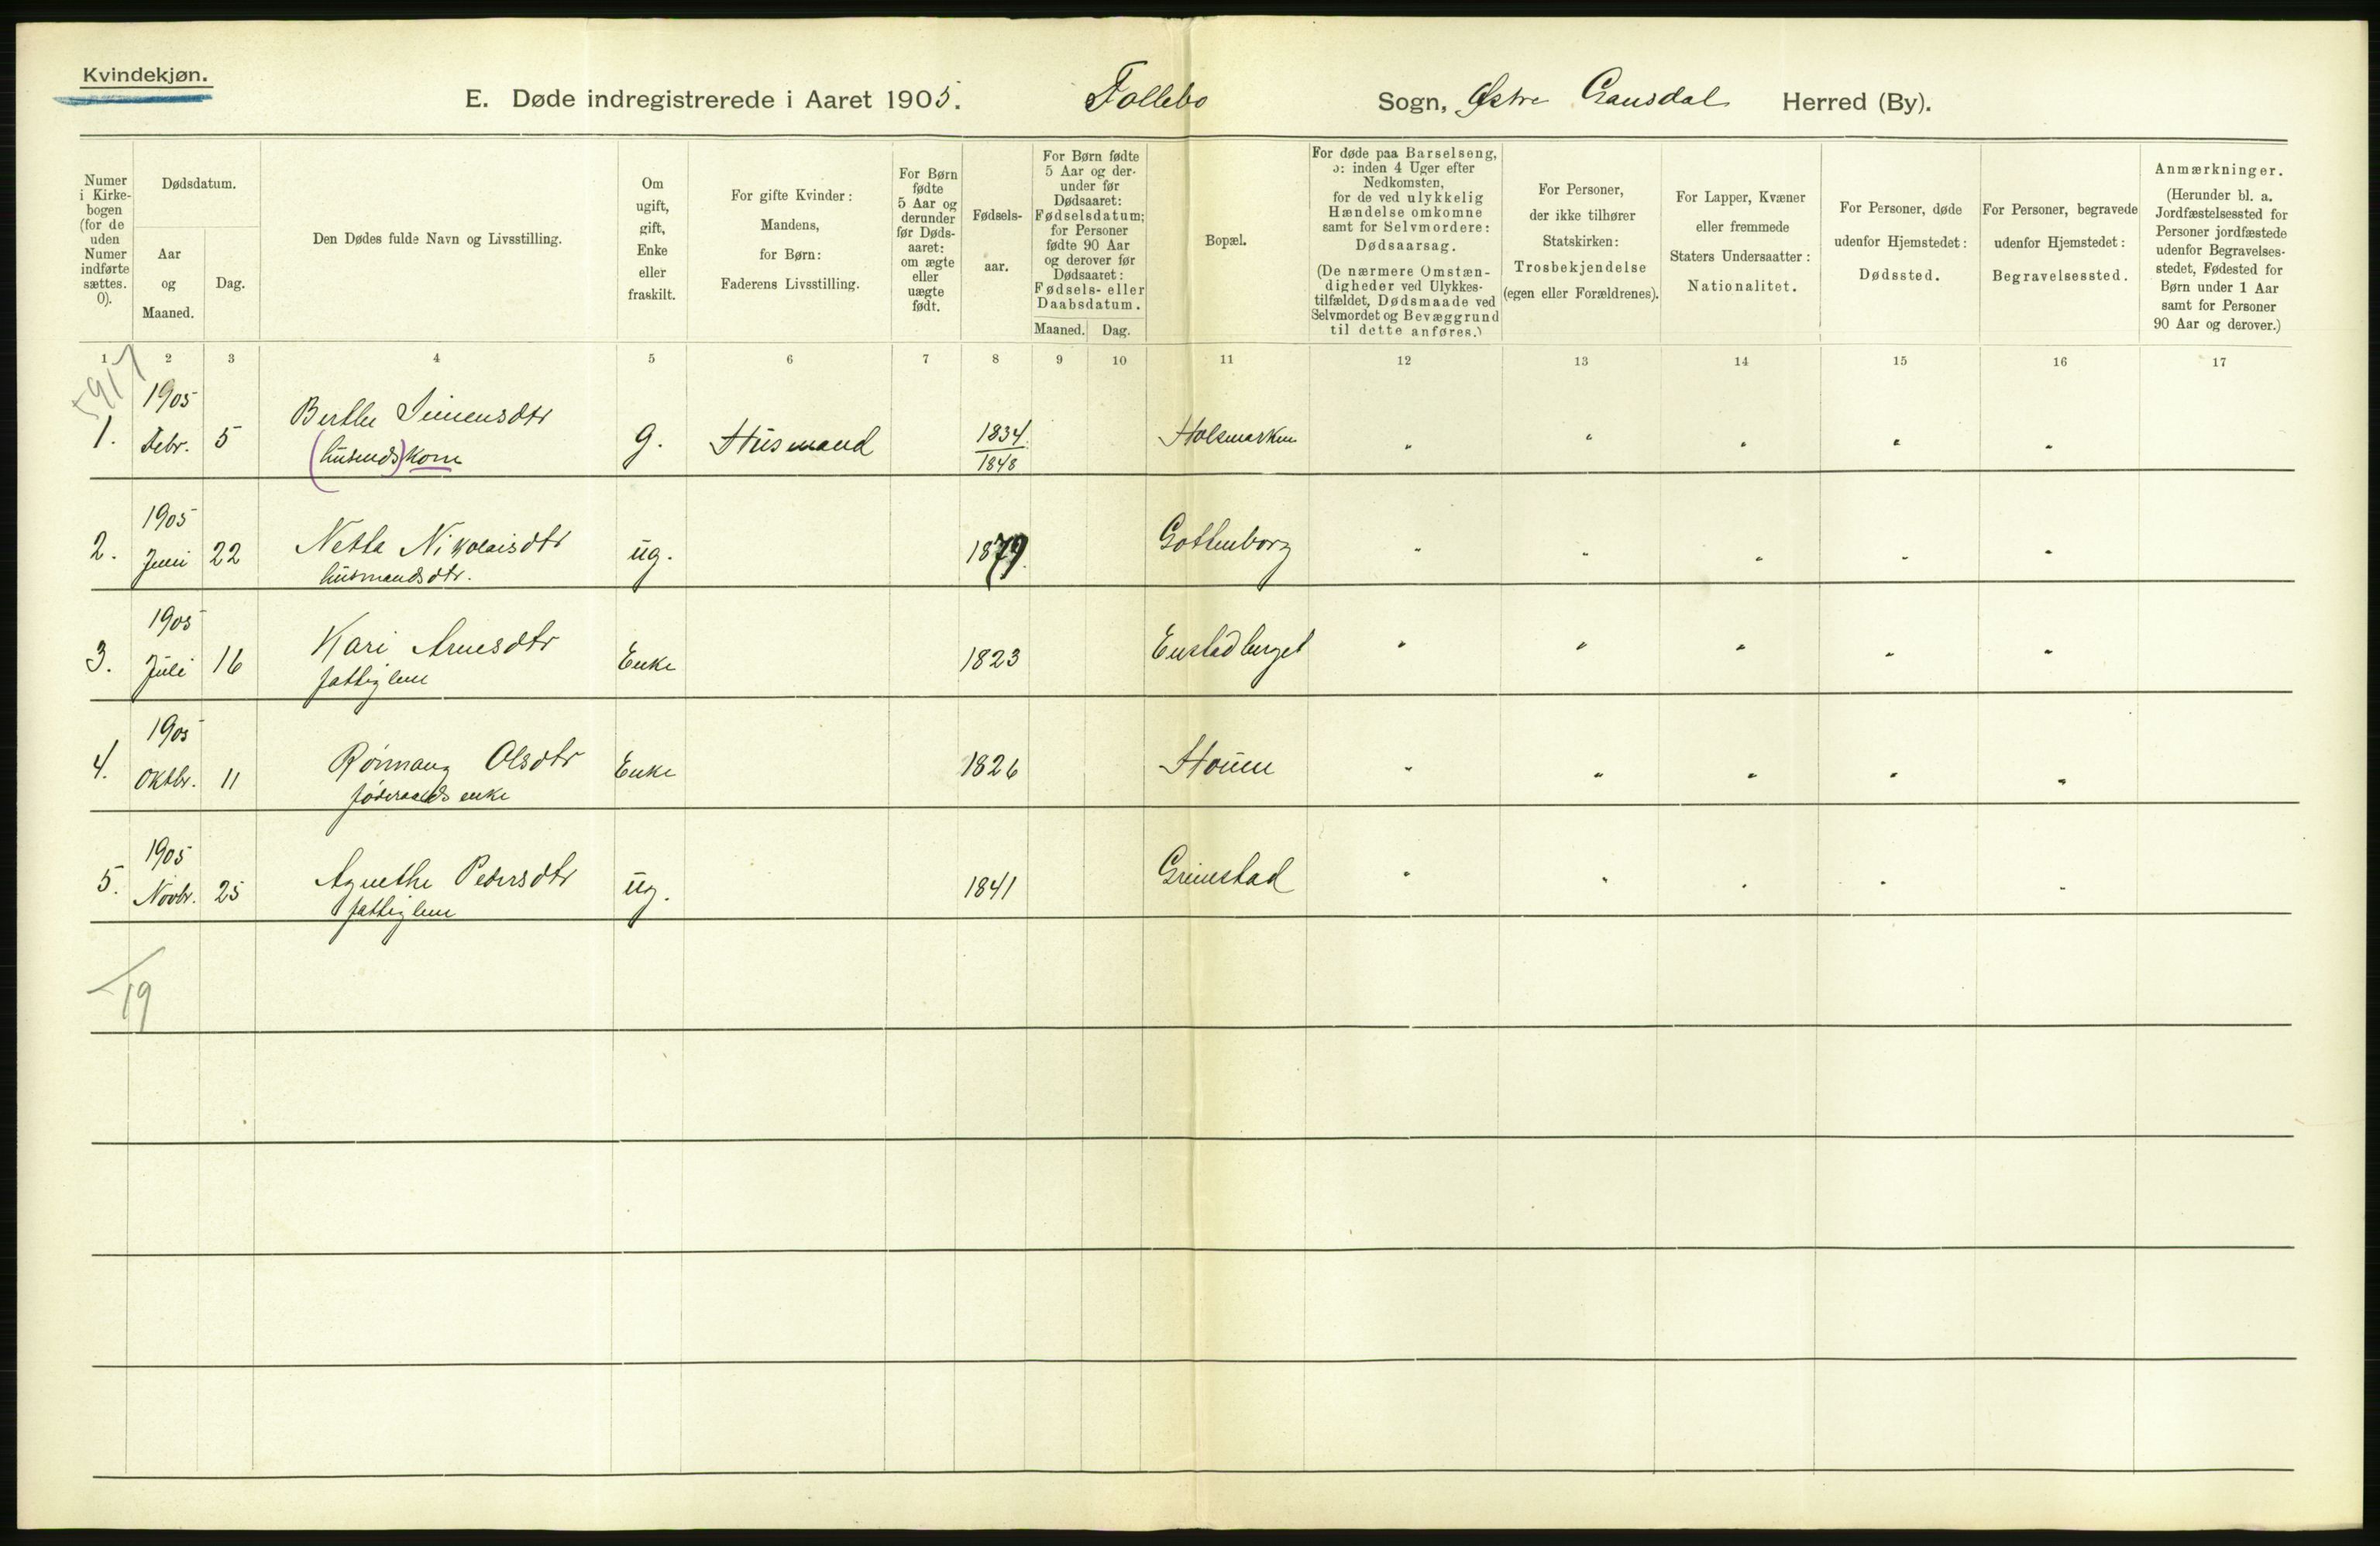 Kvindekjøn.
E. Døde indregistrerede i Aaret 1905. Follebo Sogn, Østre Gausdal Herred (By).
Numer i Kirke-bogen (for de uden Numer indførte sættes. 0).
Dødsdatum.
Aar og Maaned.
Dag.
Den Dødes fulde Navn og Livsstilling.
Om ugift, gift, Enke eller fraskilt.
For gifte Kvinder: Mandens, for Børn: Faderens Livsstilling.
For Børn fødte 5 Aar og derunder før Døds-aaret: om ægte eller uægte født.
Fødsels-aar.
For Børn fødte 5 Aar og der-under før Dødsaaret: Fødselsdatum; for Personer fødte 90 Aar og derover før Dødsaaret: Fødsels- eller Daabsdatum.
Maaned. Dag.
Bopæl.
For døde paa Barselseng, ɔ: inden 4 Uger efter Nedkomsten, for de ved ulykkelig Hændelse omkomne samt for Selvmordere: Dødsaarsag.
(De nærmere Omstæn-digheder ved Ulykkes-tilfældet, Dødsmaade ved Selvmordet og Bevæggrund til dette anføres.)
For Personer, der ikke tilhører Statskirken: Trosbekjendelse (egen eller Forældrenes).
For Lapper, Kvæner eller fremmede Staters Undersaatter: Nationalitet.
For Personer, døde udenfor Hjemstedet: Dødssted.
For Personer, begravede udenfor Hjemstedet: Begravelsessted.
Anmærkninger.
(Herunder bl. a. Jordfæstelsessted for Personer jordfæstede udenfor Begravelses-stedet, Fødested for Børn under 1 Aar samt for Personer 90 Aar og derover.)
1 2 3 4 5 6 7 8 9 10 11 12 13 14 15 16 17
5917
1905 Berthe Simensdtr
1. Febr. 5 (husmds) Kone g. Husmand 1834 Holsmarken " " " " "
1848
1905
2. Juni 22 Netta Nikolaisdtr ug. 1879. Gottenborg " " " " "
husmandsdtr.
1905
3. Juli 16 Kari Arnesdtr Enke 1823 Enstadberget " " " " "
fattiglem
1905
4. Oktbr. 11 Rønnaug Olsdtr Enke 1826 " " " " "
føderaads enke
1905
5. Novbr. 25 Agnethe Pedersdtr ug. 1841 Grimstad " " " " "
fattiglem
19